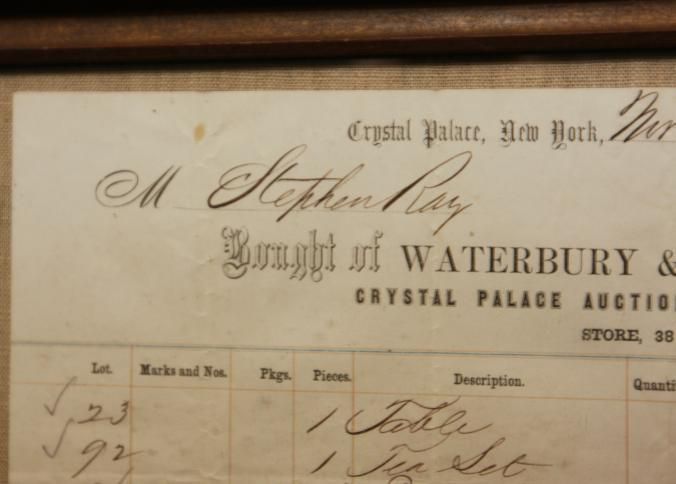 Crystal Palace, New York, Nov
M Stephen Ray
Bought of WATERBURY &
CRYSTAL PALACE AUCTIO
STORE, 38
Lot. Marks and Nos. Pkgs. Pieces. Description. Quanti
23 1 Table
92 1 Tea Set